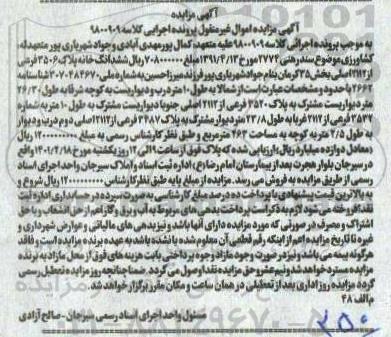 آگهی مزایده
آگهی مزایده اموال غیرمنقول پرونده اجرایی کلاسه ۹۸۰۰۹۰۹
به موجب پرونده اجرائی کلاسه ۹۸۰۰۹۰۹ علیه متعهد کمال پورمهدی آبادی و جواد شهریاری پور متعهدله:
کشاورزی موضوع سند رهنی ۲۷۷۴ مورخ ۱۳۹۱/۴/۱۳ مبلغ ۷۰۸۰۰۰۰۰۰ ریال ششدانگ خانه پلاک ۳۵۰۶ فرعی
از ۲۱۱۲ اصلی بخش ۳۵ کرمان بنام جواد شهریاری پور فرزند میرزاحسین به شماره ملی شناسنامه
۲۶۶۲ با حدود و مشخصات عبارت است از شمالا به طول ۱۰ متر درب و دیواریست به کوچه شرقا به طول ۲۶/۳۰
متر دیواریست مشترک به پلاک ۳۵۲۰ فرعی از ۲۱۱۲ اصلی جنوبا دیواریست مشترک به طول ۱۰ متر به شماره
۳۴۷۳ فرعی از ۲۱۱۲ غربا به طول ۲۳/۸۰ متر دیوار مشترک به پلاک ۳۴۸۷ فرعی از ۲۱۱۲ اصلی دوم درب و دیوار
به طول ۲/۵ متر به کوچه به مساحت ۲۶۳ مترمربع و طبق نظر کارشناس رسمی به مبلغ ۱۲۰۰۰۰۰۰۰۰۰ ریال
معادل دوازده میلیارد ریال ارزیابی شده که پلاک فوق از ساعت ۹ الی ۱۲ روز یکشنبه مورخ ۱۴۰۱/۲/۱۸ واقع
در سیرجان بلوار هجرت بعد از بیمارستان امام رضا (ع) اداره ثبت اسناد و املاک سیرجان واحد اجرای اسناد
رسمی از طریق مزایده به فروش می رسد. مزایده از مبلغ پایه طبق نظر کارشناس ۱۲۰۰۰۰۰۰۰۰۰ ریال شروع و
به بالاترین قیمت پیشنهادی با پرداخت ده درصد مبلغ کارشناسی به صورت سپرده در حسابداری اداره ثبت
نقدا فروخته می شود لازم به ذکر است پرداخت بدهی های مربوط به آب و برق و گاز اعم از حق انشعاب و یا حق
اشتراک و مصرف در صورتی که مورد مزایده دارای آنها باشد و نیز بدهی های مالیاتی و عوارض شهرداری و
غیره تا تاریخ مزایده اعم از اینکه رقم قطعی آن معلوم شده یا نشده باشد به عهده برنده مزایده است و فاقد
هرگونه بیمه می باشد و نیز در صورت وجود مازاد وجوه پرداختی بابت هزینه های فوق از محل مازاد به برنده
مزایده مسترد خواهد شد و نیم عشر و حق مزایده نقدا وصول می گردد. ضمنا چنانچه روز مزایده تعطیل رسمی
گردد مزایده روز اداری بعد از تعطیلی در همان ساعت و مکان مقرر برگزار خواهد شد.
م الف ۴۸
مسئول واحد اجرای اسناد رسمی سیرجان - صالح آزادی